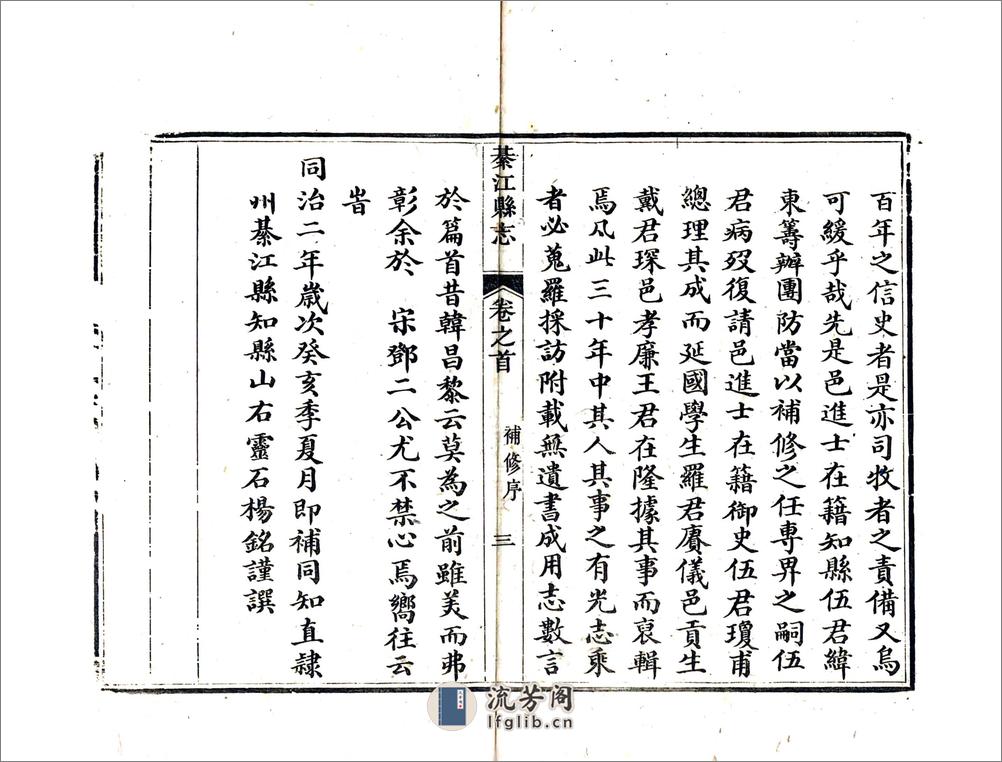 百年之信史者是亦司牧者之責備又烏
可緩乎哉先是邑進士在籍知縣伍君緯
東籌辦團防當以補修之任專畀之嗣伍
君病歿復請邑進士在籍御史伍君瓊甫
總理其成而延國學生羅君賡儀邑貢生
戴君琛邑孝廉王君在隆據其事而裒輯
焉凡此三十年中其人其事之有光志乘
者必蒐羅採訪附載無遺書成用志數言
綦江縣志 卷之首 補修序 三
於篇首昔韓昌黎云莫為之前雖美而弗
彰余於 宋鄧二公尤不禁心焉嚮往云
旹
同治二年歲次癸亥季夏月即補同知直隷
州綦江縣知縣山右靈石楊銘謹譔
流芳阁
lfglib.cn